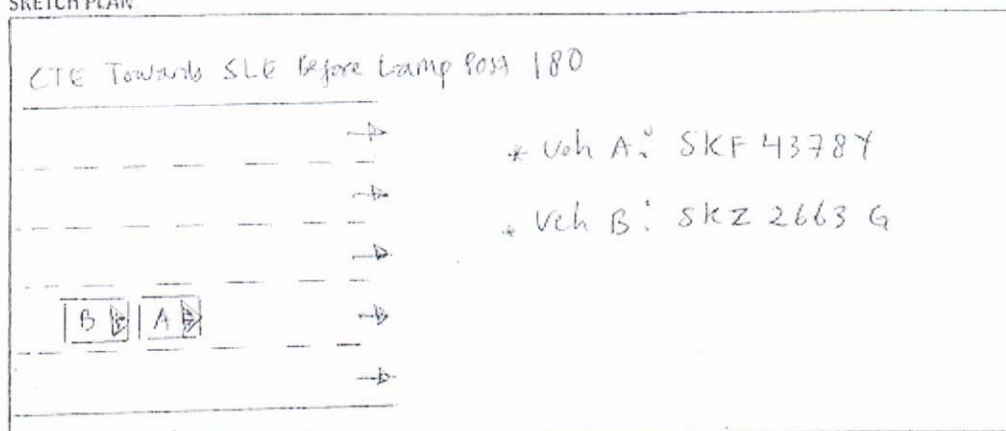 SKETCH PLAN
CTE Towards SLE Before Lamp Post 180
* Veh A: SKF 4378Y
* Veh B: SKZ 2663 G
B A